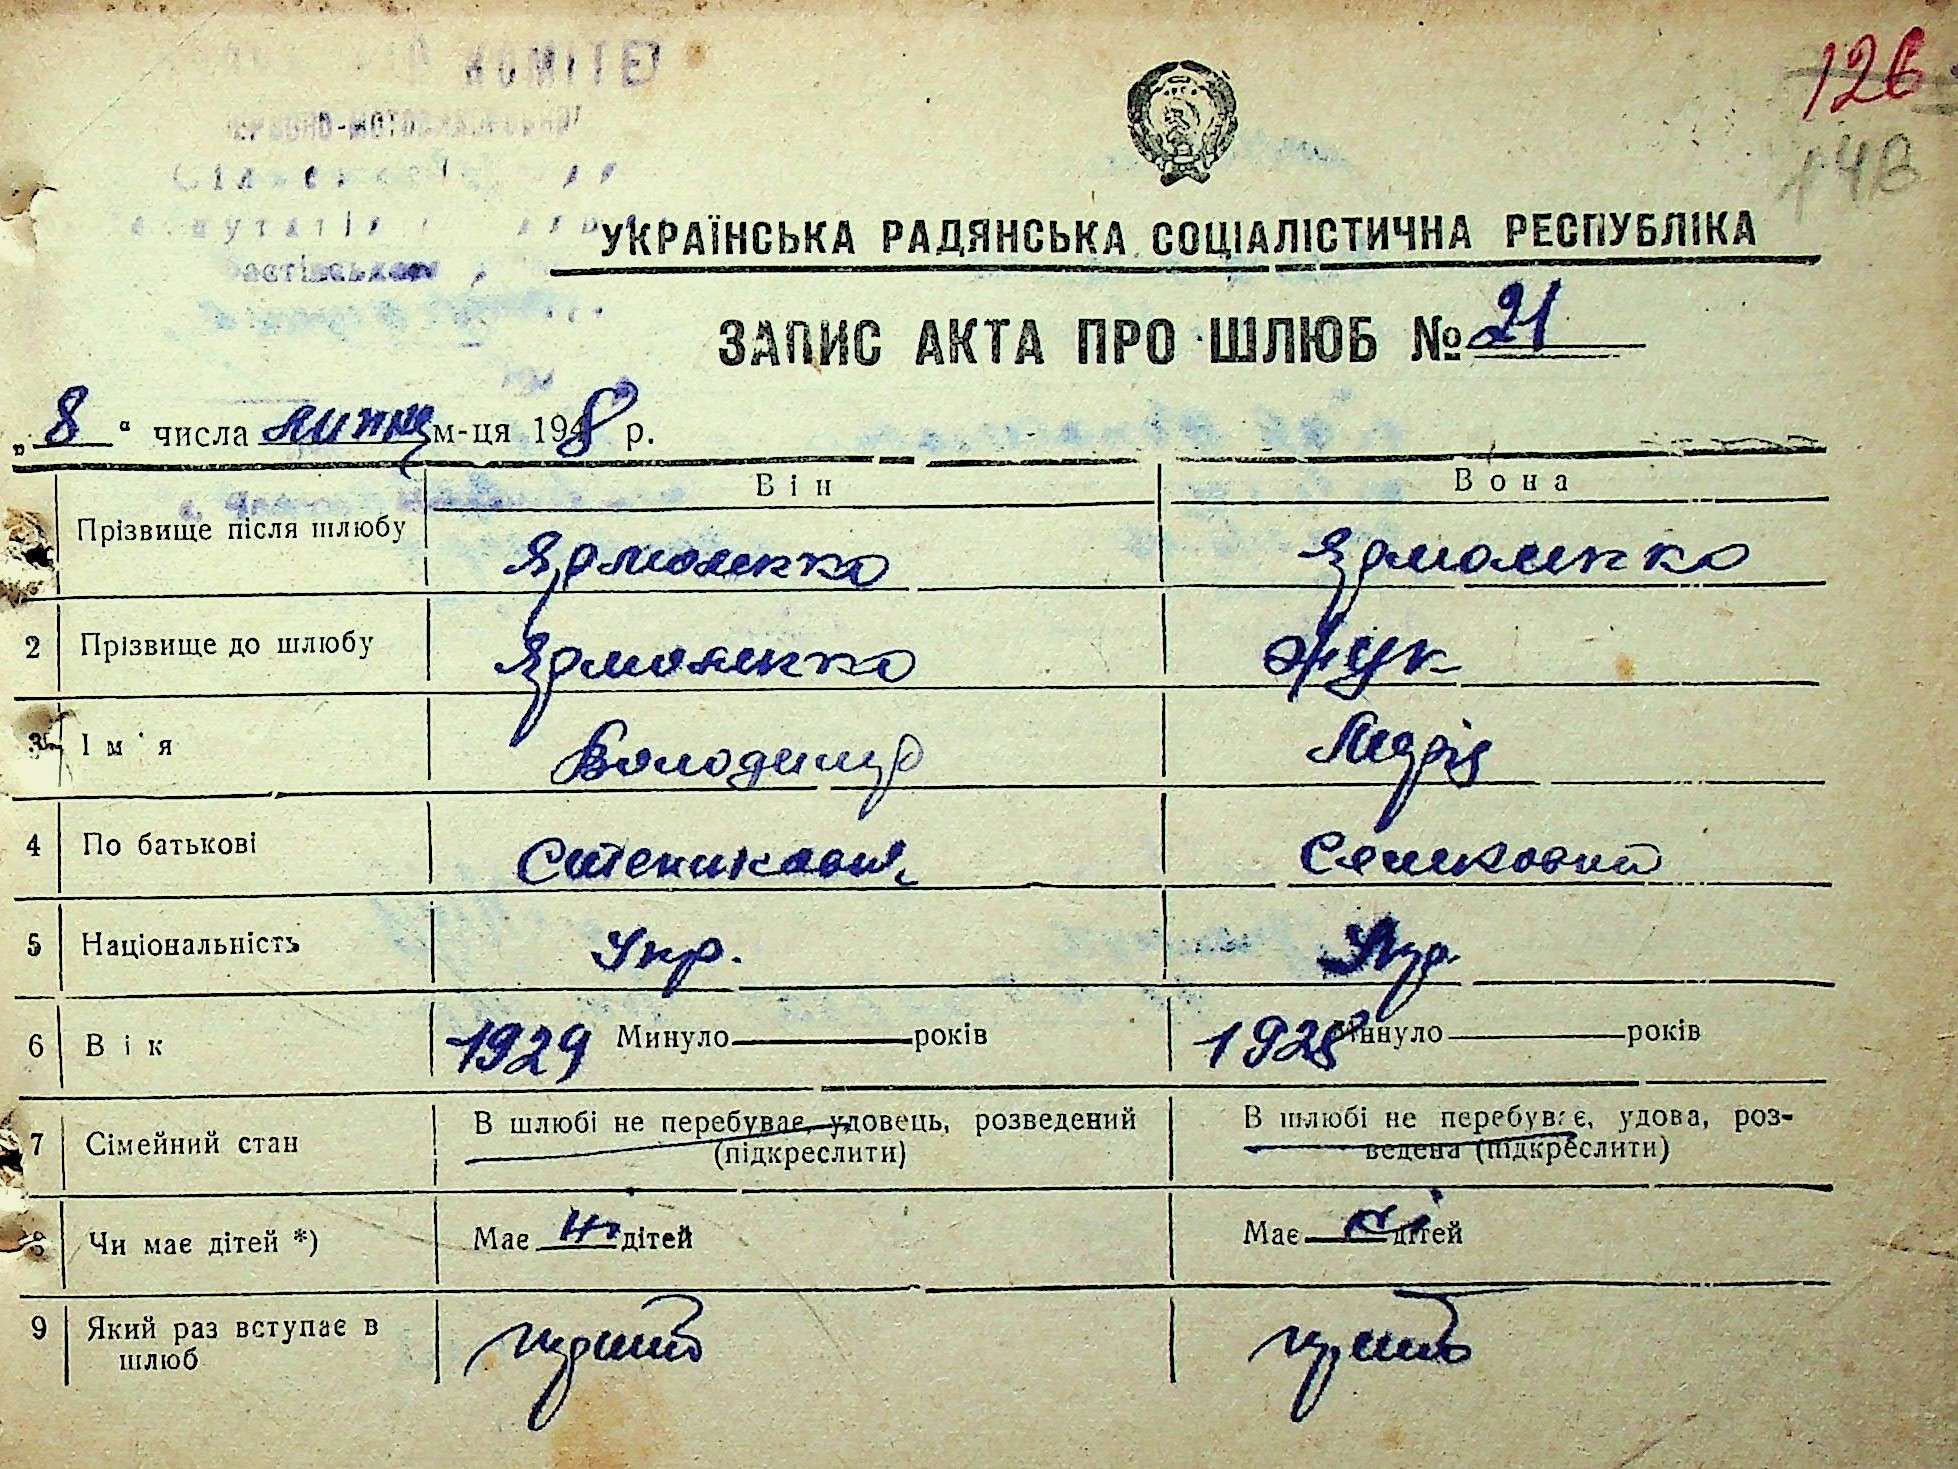 126
148
УКРАЇНСЬКА РАДЯНСЬКА СОЦІАЛІСТИЧНА РЕСПУБЛІКА
ЗАПИС АКТА ПРО ШЛЮБ № 21
„8“ числа липня м-ця 1948 р.
Він Вона
Прізвище після шлюбу Ярмоленко Ярмоленко
2 Прізвище до шлюбу Ярмоленко Жук
3 Ім'я Володимир Марія
4 По батькові
5 Національність Укр. Укр.
6 Вік 1929 Минуло років 1928 Минуло років
7 Сімейний стан В шлюбі не перебуває, удовець, розведений (підкреслити) В шлюбі не перебуває, удова, роз-
ведена (підкреслити)
8 Чи має дітей *) Має дітей Має дітей
9 Який раз вступає в
шлюб